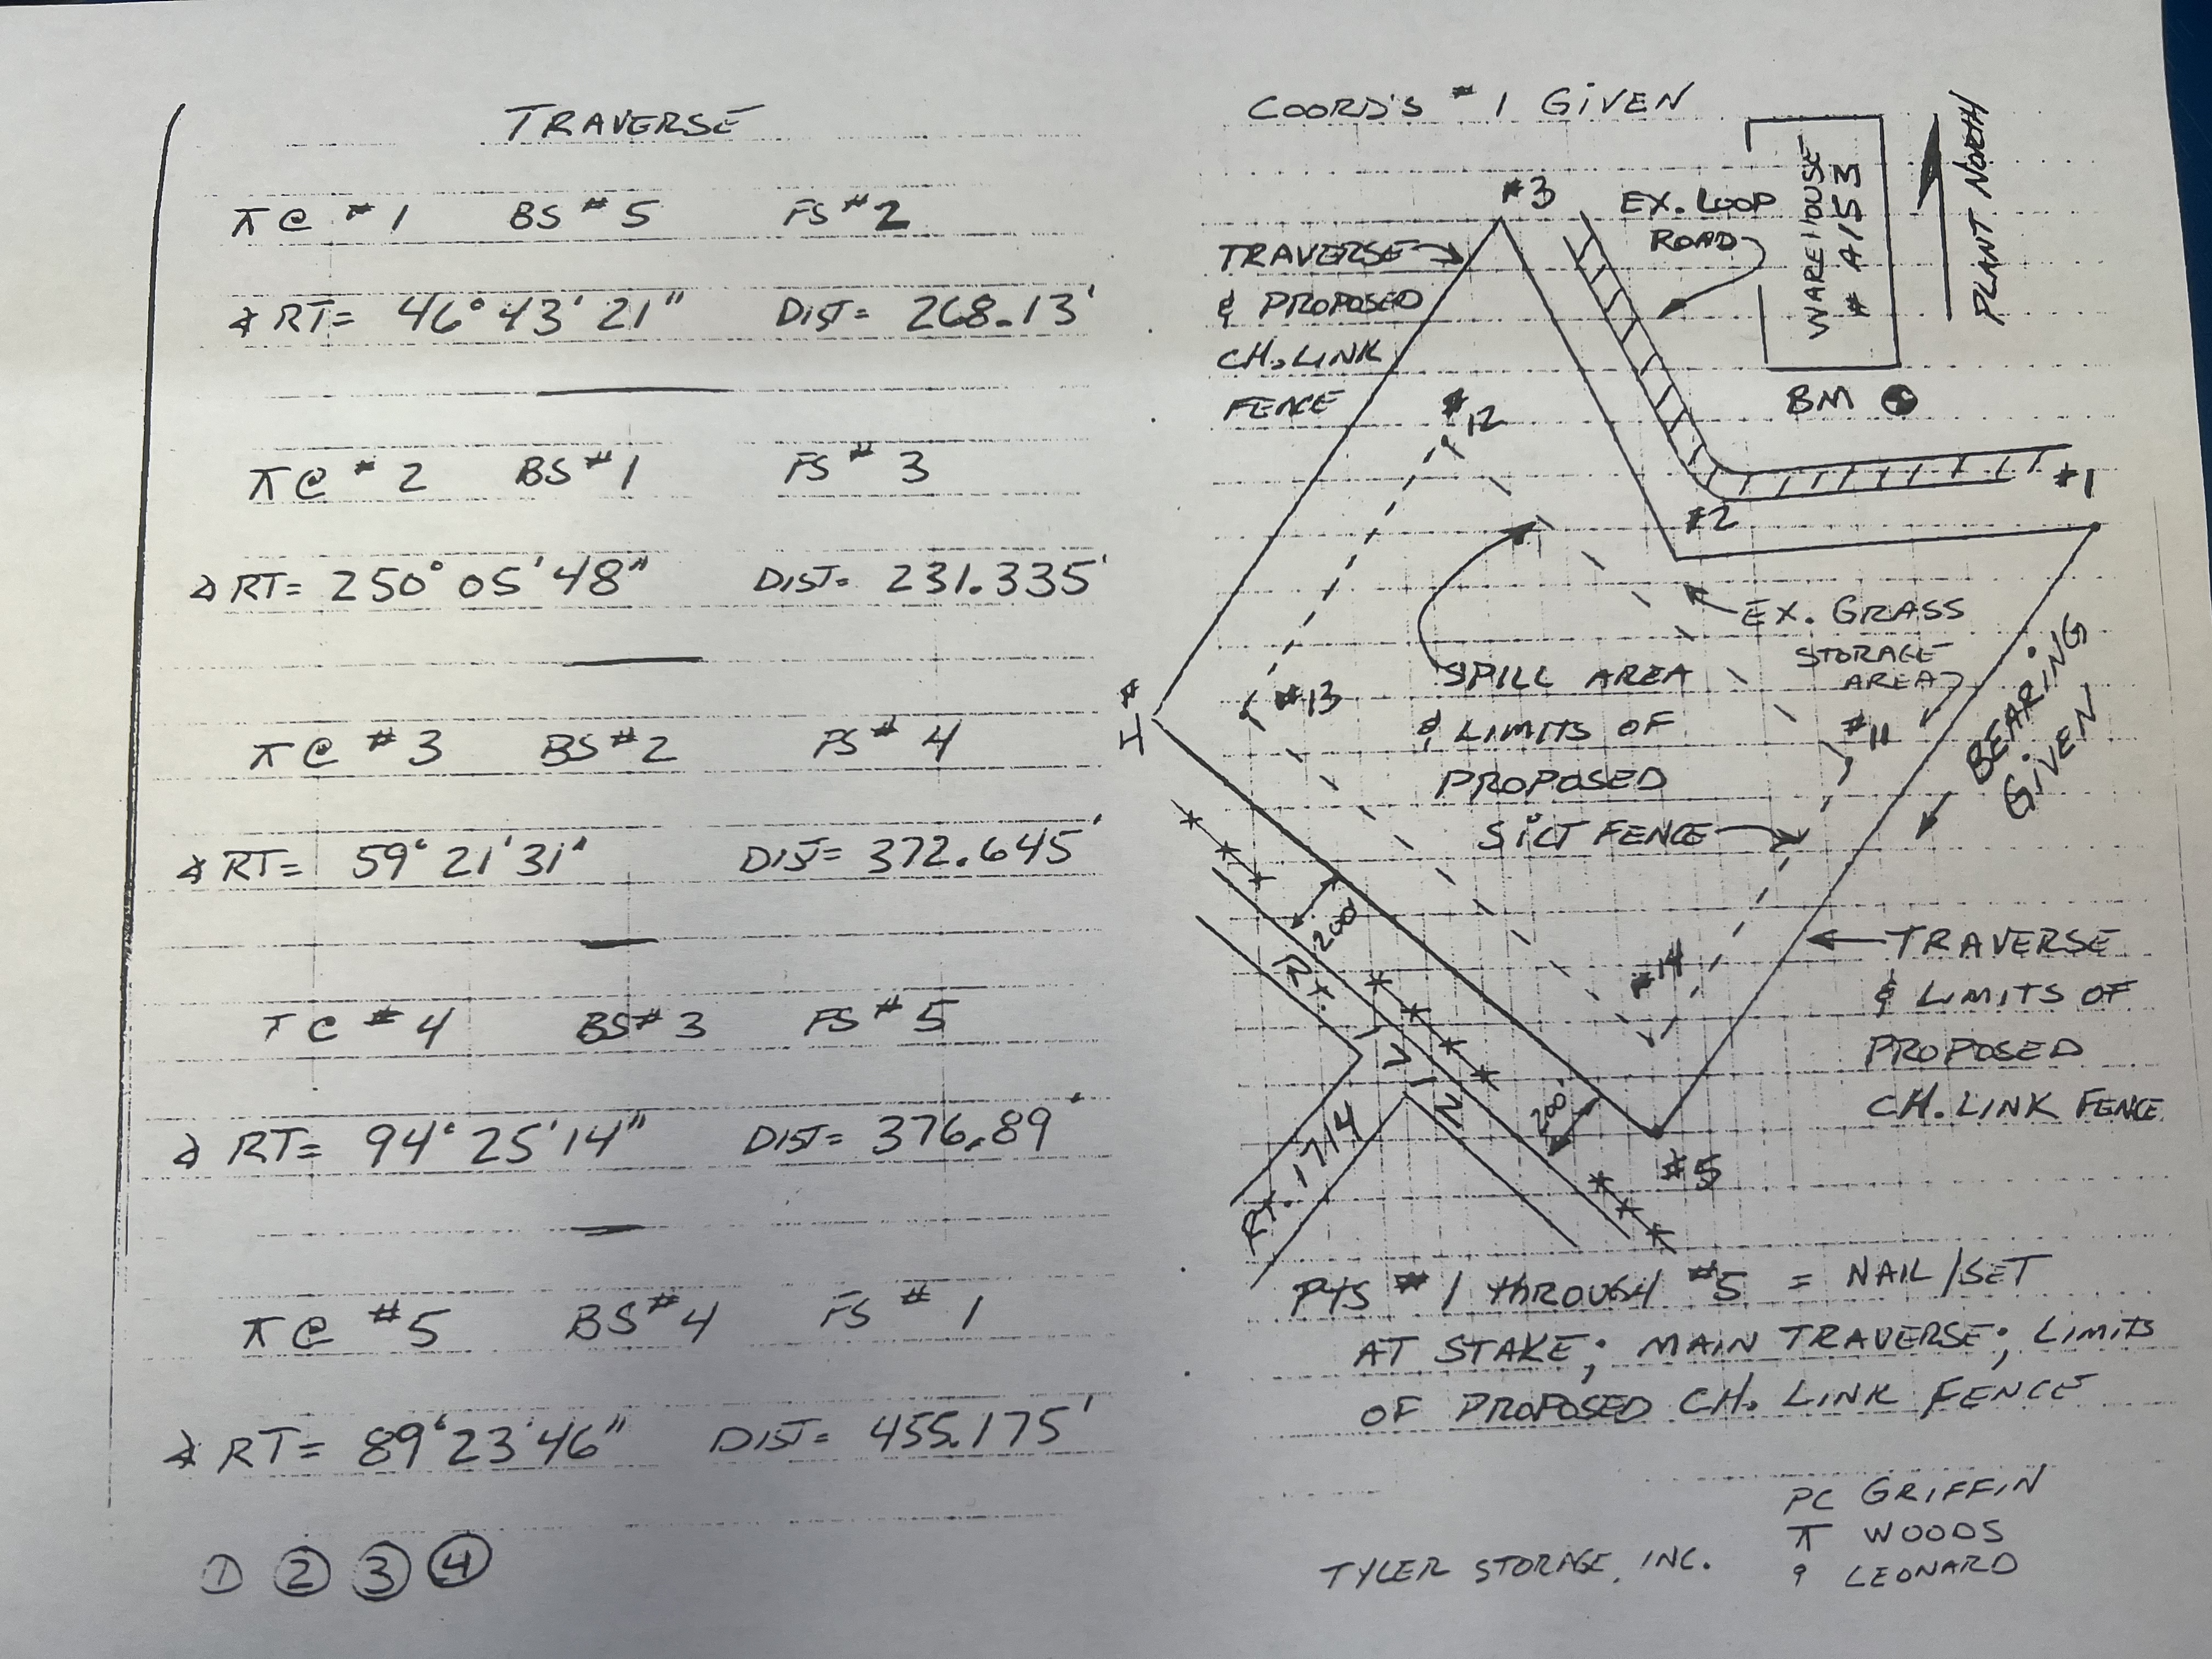 TRAVERSE
⊼ @ #1 BS #5 FS #2
∡ RT= 46° 43' 21" DIST= 268.13'
⊼ @ #2 BS #1 FS #3
∡ RT= 250° 05' 48" DIST= 231.335'
⊼ @ #3 BS #2 FS #4
∡ RT= 59° 21' 31" DIST= 372.645'
⊼ @ #4 BS #3 FS #5
∡ RT= 94° 25' 14" DIST= 376.89'
⊼ @ #5 BS #4 FS #1
∡ RT= 89° 23' 46" DIST= 455.175'
① ② ③ ④
COORD'S #1 GIVEN
#3
EX. LOOP
ROAD
WAREHOUSE
# A153
PLANT NORTH
TRAVERSE
& PROPOSED
CH. LINK
FENCE
#12
BM
#1
#2
EX. GRASS
STORAGE
AREA
BEARING
GIVEN
#4
#13
SPILL AREA
& LIMITS OF
PROPOSED
SILT FENCE
#11
200'
RT.
#14
TRAVERSE
& LIMITS OF
PROPOSED
CH. LINK FENCE
200'
RT. 1714
#5
PTS #1 THROUGH #5 = NAIL/SET
AT STAKE; MAIN TRAVERSE; LIMITS
OF PROPOSED CH. LINK FENCE
PC GRIFFIN
⊼ WOODS
TYLER STORAGE, INC.
LEONARD